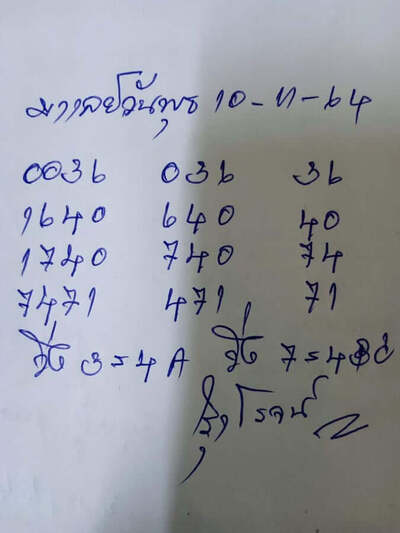 มาเลย์วันพุธ 10-11-64
0036 036 36
1640 640 40
1740 740 74
7471 471 71
วิ่ง 3=4A วิ่ง 7=4BC
โรจน์